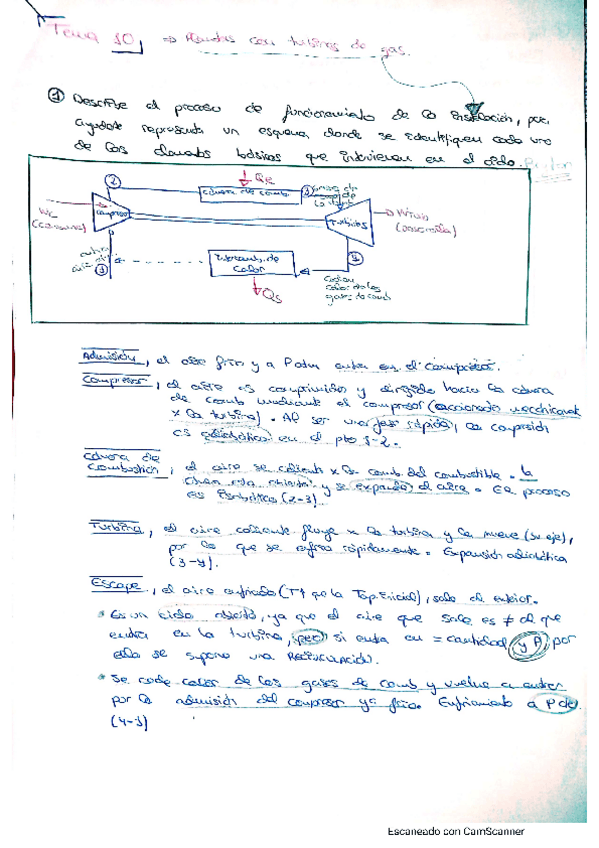 Tema 10 ⇒ Plantas con turbinas de gas.
① Describe el proceso de funcionamiento de la instalación, para
ayudarte representa un esquema donde se identifiquen cada uno
de los elementos básicos que intervienen en el ciclo. Brayton
② QE
cámara de comb ③
Wc (consumida)
compresor
Turbina
WTurb (desarrolla)
entra aire ①
Intercamb. de calor
④
QS
calor de los gases de comb
Admisión, el aire frío y a Patm entra en el compresor.
Compresor, el aire es comprimido y dirigido hacia la cámara
de comb mediante el compresor (accionado
x la turbina). Al ser una fase rápida, la compresión
es adiabática en el pto 1-2.
Cámara de
Combustión, el aire se calienta x la comb. del combustible. la
cámara está abierta y se expande el aire. El proceso
es isobárico (2-3)
Turbina, el aire caliente fluye x la turbina y la mueve (su eje),
por lo que se enfría rápidamente. Expansión adiabática
(3-4).
Escape, el aire enfriado (T↑ que la Tap. Inicial), sale al exterior.
* Es un ciclo abierto, ya que el aire que sale es ≠ al que
entra en la turbina, pero si entra en = cantidad y P, por
ello se supone una RECIRCULACIÓN.
* Se cede calor de los gases de comb y vuelve a entrar
por la admisión del compresor ya frío. Enfriamiento a P cte.
(4-1)
Escaneado con CamScanner